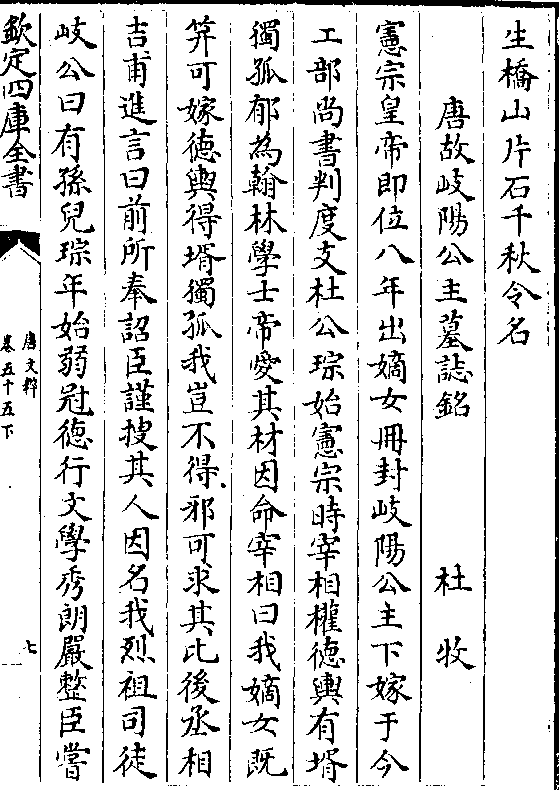 生橋山片石千秋令名
唐故岐陽公主墓誌銘 杜牧
憲宗皇帝即位八年出嫡女冊封岐陽公主下嫁于今
工部尚書判度支杜公琮始憲宗時宰相權德輿有壻
獨孤郁為翰林學士帝愛其材因命宰相曰我嫡女既
笄可嫁德輿得壻獨孤我豈不得邪可求其比後丞相
吉甫進言曰前所奉詔臣謹搜其人因名我烈祖司徒
岐公曰有孫兒琮年始弱冠德行文學秀朗嚴整臣嘗
欽定四庫全書
唐文粹
卷五十五下
七